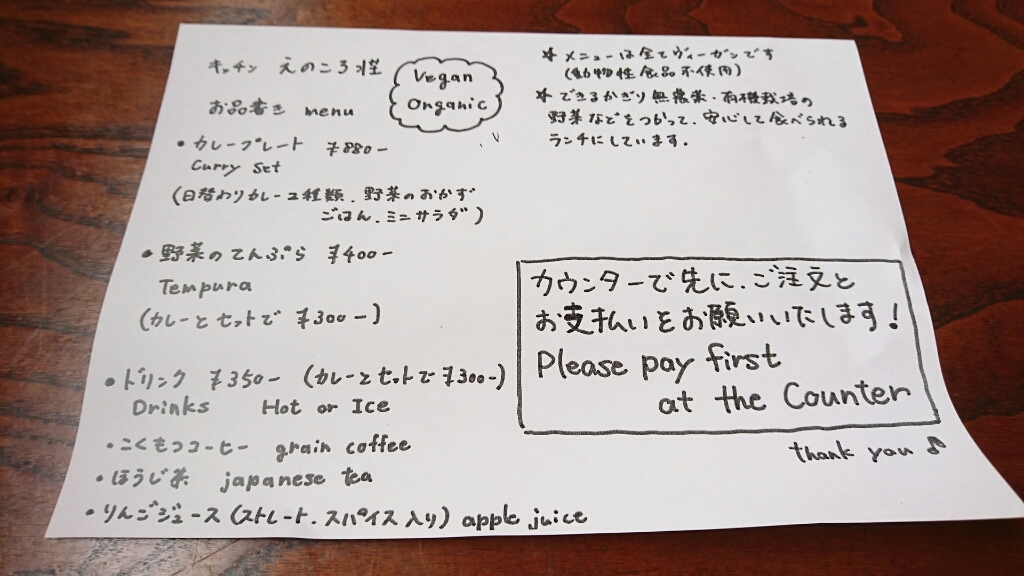 キッチン えのころ荘
Vegan
Organic
お品書き menu
・カレープレート ¥880-
Curry Set
(日替わりカレー2種類、野菜のおかず
ごはん、ミニサラダ)
・野菜のてんぷら ¥400-
Tempura
(カレーとセットで ¥300-)
・ドリンク ¥350- (カレーとセットで¥300-)
Drinks Hot or Ice
・こくもつコーヒー grain coffee
・ほうじ茶 japanese tea
・りんごジュース(ストレート、スパイス入り) apple juice
* メニューは全てヴィーガンです
(動物性食品不使用)
* できるかぎり無農薬・有機栽培の
野菜などをつかって、安心して食べられる
ランチにしています.
カウンターで先に、ご注文と
お支払いをお願いいたします!
Please pay first
at the Counter
thank you ♪